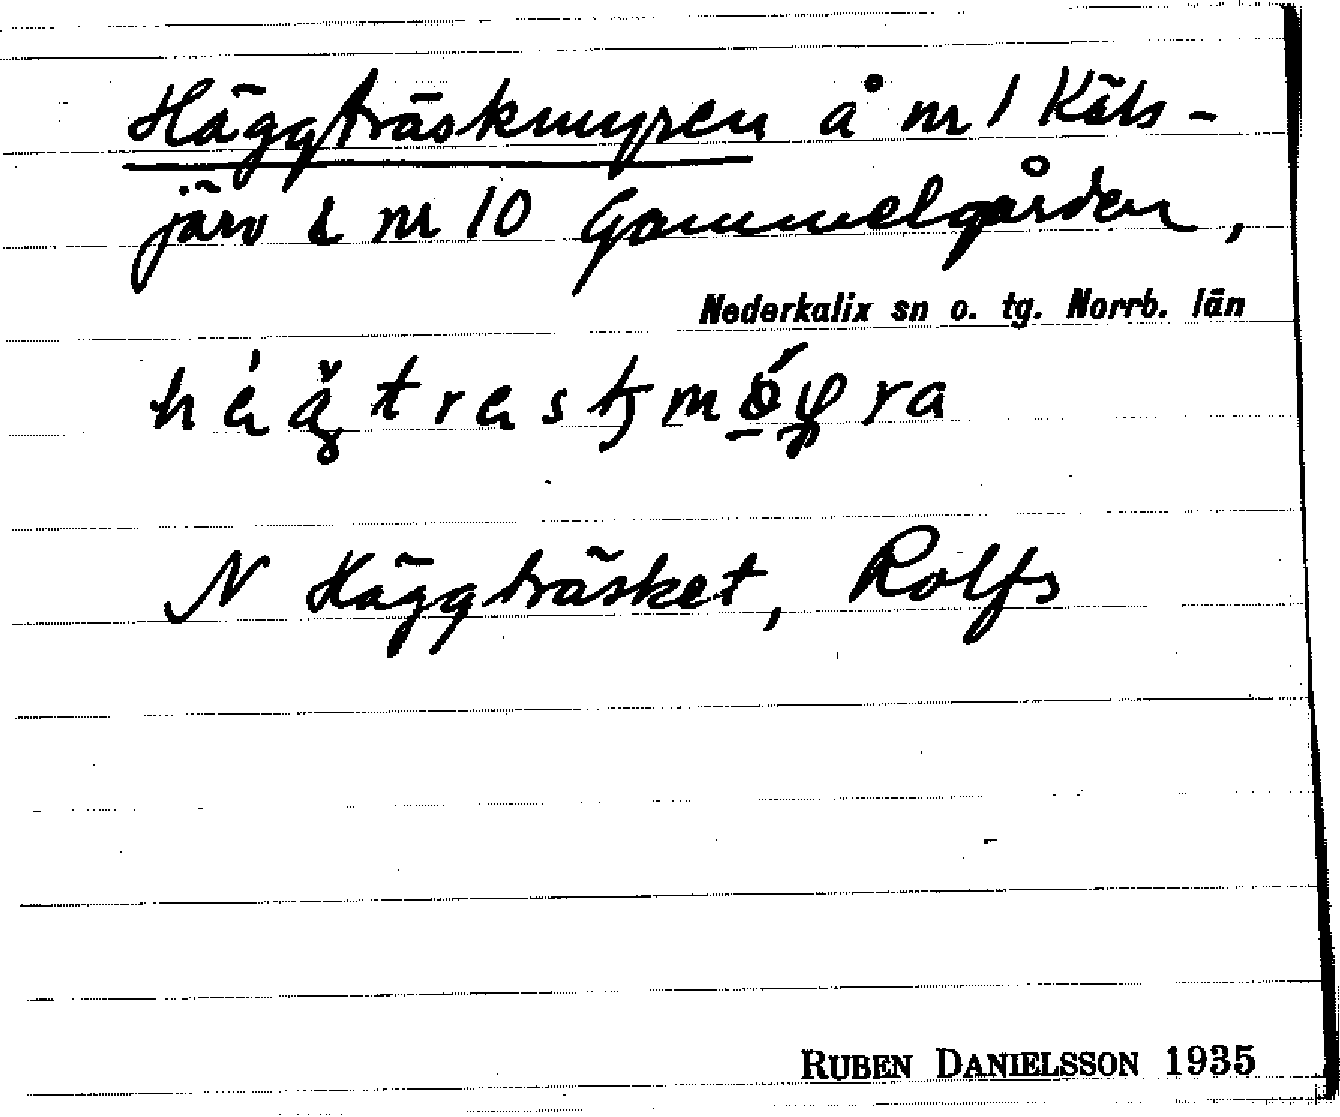 Häggträskmyren å nr 1 Käls-
järv & nr 10 Gammelgården,
Nederkalix sn o. tg. Norrb. län
N Häggträsket, Rolfs
RUBEN DANIELSSON 1935